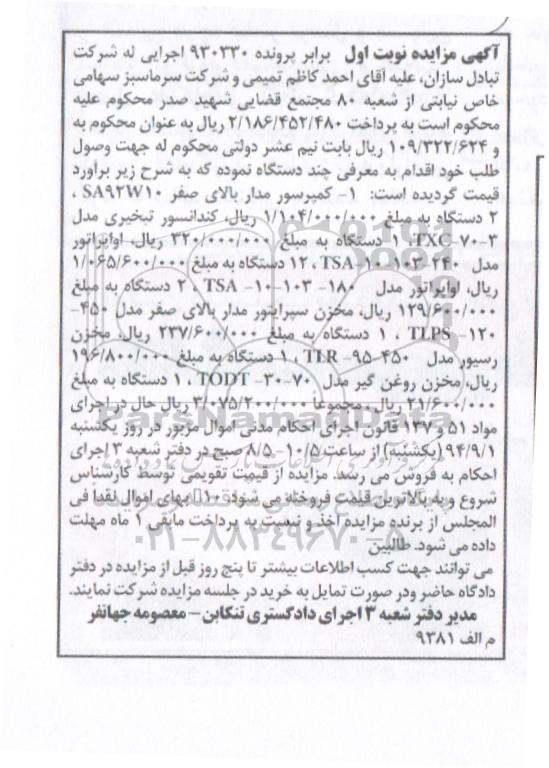 آگهی مزایده نوبت اول برابر پرونده ۹۳۰۳۳۰ اجرایی له شرکت
تبادل سازان، علیه آقای احمد کاظم تمیمی و شرکت سرماسبز سهامی
خاص نیابتی از شعبه ۸۰ مجتمع قضایی شهید صدر محکوم علیه
محکوم است به پرداخت ۲/۱۸۶/۴۵۲/۴۸۰ ریال به عنوان محکوم به
و ۱۰۹/۳۲۲/۶۲۴ ریال بابت نیم عشر دولتی محکوم له جهت وصول
طلب خود اقدام به معرفی چند دستگاه نموده که به شرح زیر براورد
قیمت گردیده است: ۱- کمپرسور مدار بالای صفر SA۹۲W۱۰ ،
۲ دستگاه به مبلغ ۱/۱۰۴/۰۰۰/۰۰۰ ریال، کندانسور تبخیری مدل
TXC-۷۰-۳، ۱ دستگاه به مبلغ ۳۲۰/۰۰۰/۰۰۰ ریال، اواپراتور
مدل ۲۴۰-۱۰۳-۱۰-TSA ، ۱۲ دستگاه به مبلغ ۱/۰۶۵/۶۰۰/۰۰۰
ریال، اواپراتور مدل ۱۸۰- ۱۰۳-۱۰- TSA ، ۲ دستگاه به مبلغ
۱۲۹/۶۰۰/۰۰۰ ریال، مخزن سپراتور مدار بالای صفر مدل ۴۵۰-
۱۲۰- TLPS ، ۱ دستگاه به مبلغ ۲۳۷/۶۰۰/۰۰۰ ریال، مخزن
رسیور مدل ۴۵۰-۹۵- TLR ، ۱ دستگاه به مبلغ ۱۹۶/۸۰۰/۰۰۰
ریال، مخزن روغن گیر مدل ۷۰-۳۰- TODT ، ۱ دستگاه به مبلغ
۲۱/۶۰۰/۰۰۰ ریال، مجموعا ۳/۰۷۵/۲۰۰/۰۰۰ ریال حال در اجرای
مواد ۵۱ و ۱۳۷ قانون اجرای احکام مدنی اموال مزبور در روز یکشنبه
۹۴/۹/۱ (یکشنبه) از ساعت ۱۰/۵- ۸/۵ صبح در دفتر شعبه ۳ اجرای
احکام به فروش می رسد. مزایده از قیمت تقویمی توسط کارشناس
شروع و به بالاترین قیمت فروخته می شود. ۱۰ بهای اموال نقدا فی
المجلس از برنده مزایده اخذ و نسبت به پرداخت مابقی ۱ ماه مهلت
داده می شود. طالبین
می توانند جهت کسب اطلاعات بیشتر تا پنج روز قبل از مزایده در دفتر
دادگاه حاضر ودر صورت تمایل به خرید در جلسه مزایده شرکت نمایند.
مدیر دفتر شعبه ۳ اجرای دادگستری تنکابن – معصومه جهانفر
م الف ۹۳۸۱
ParsNamadData
۰۲۱-۸۸۳۴۹۶۷۰-۵